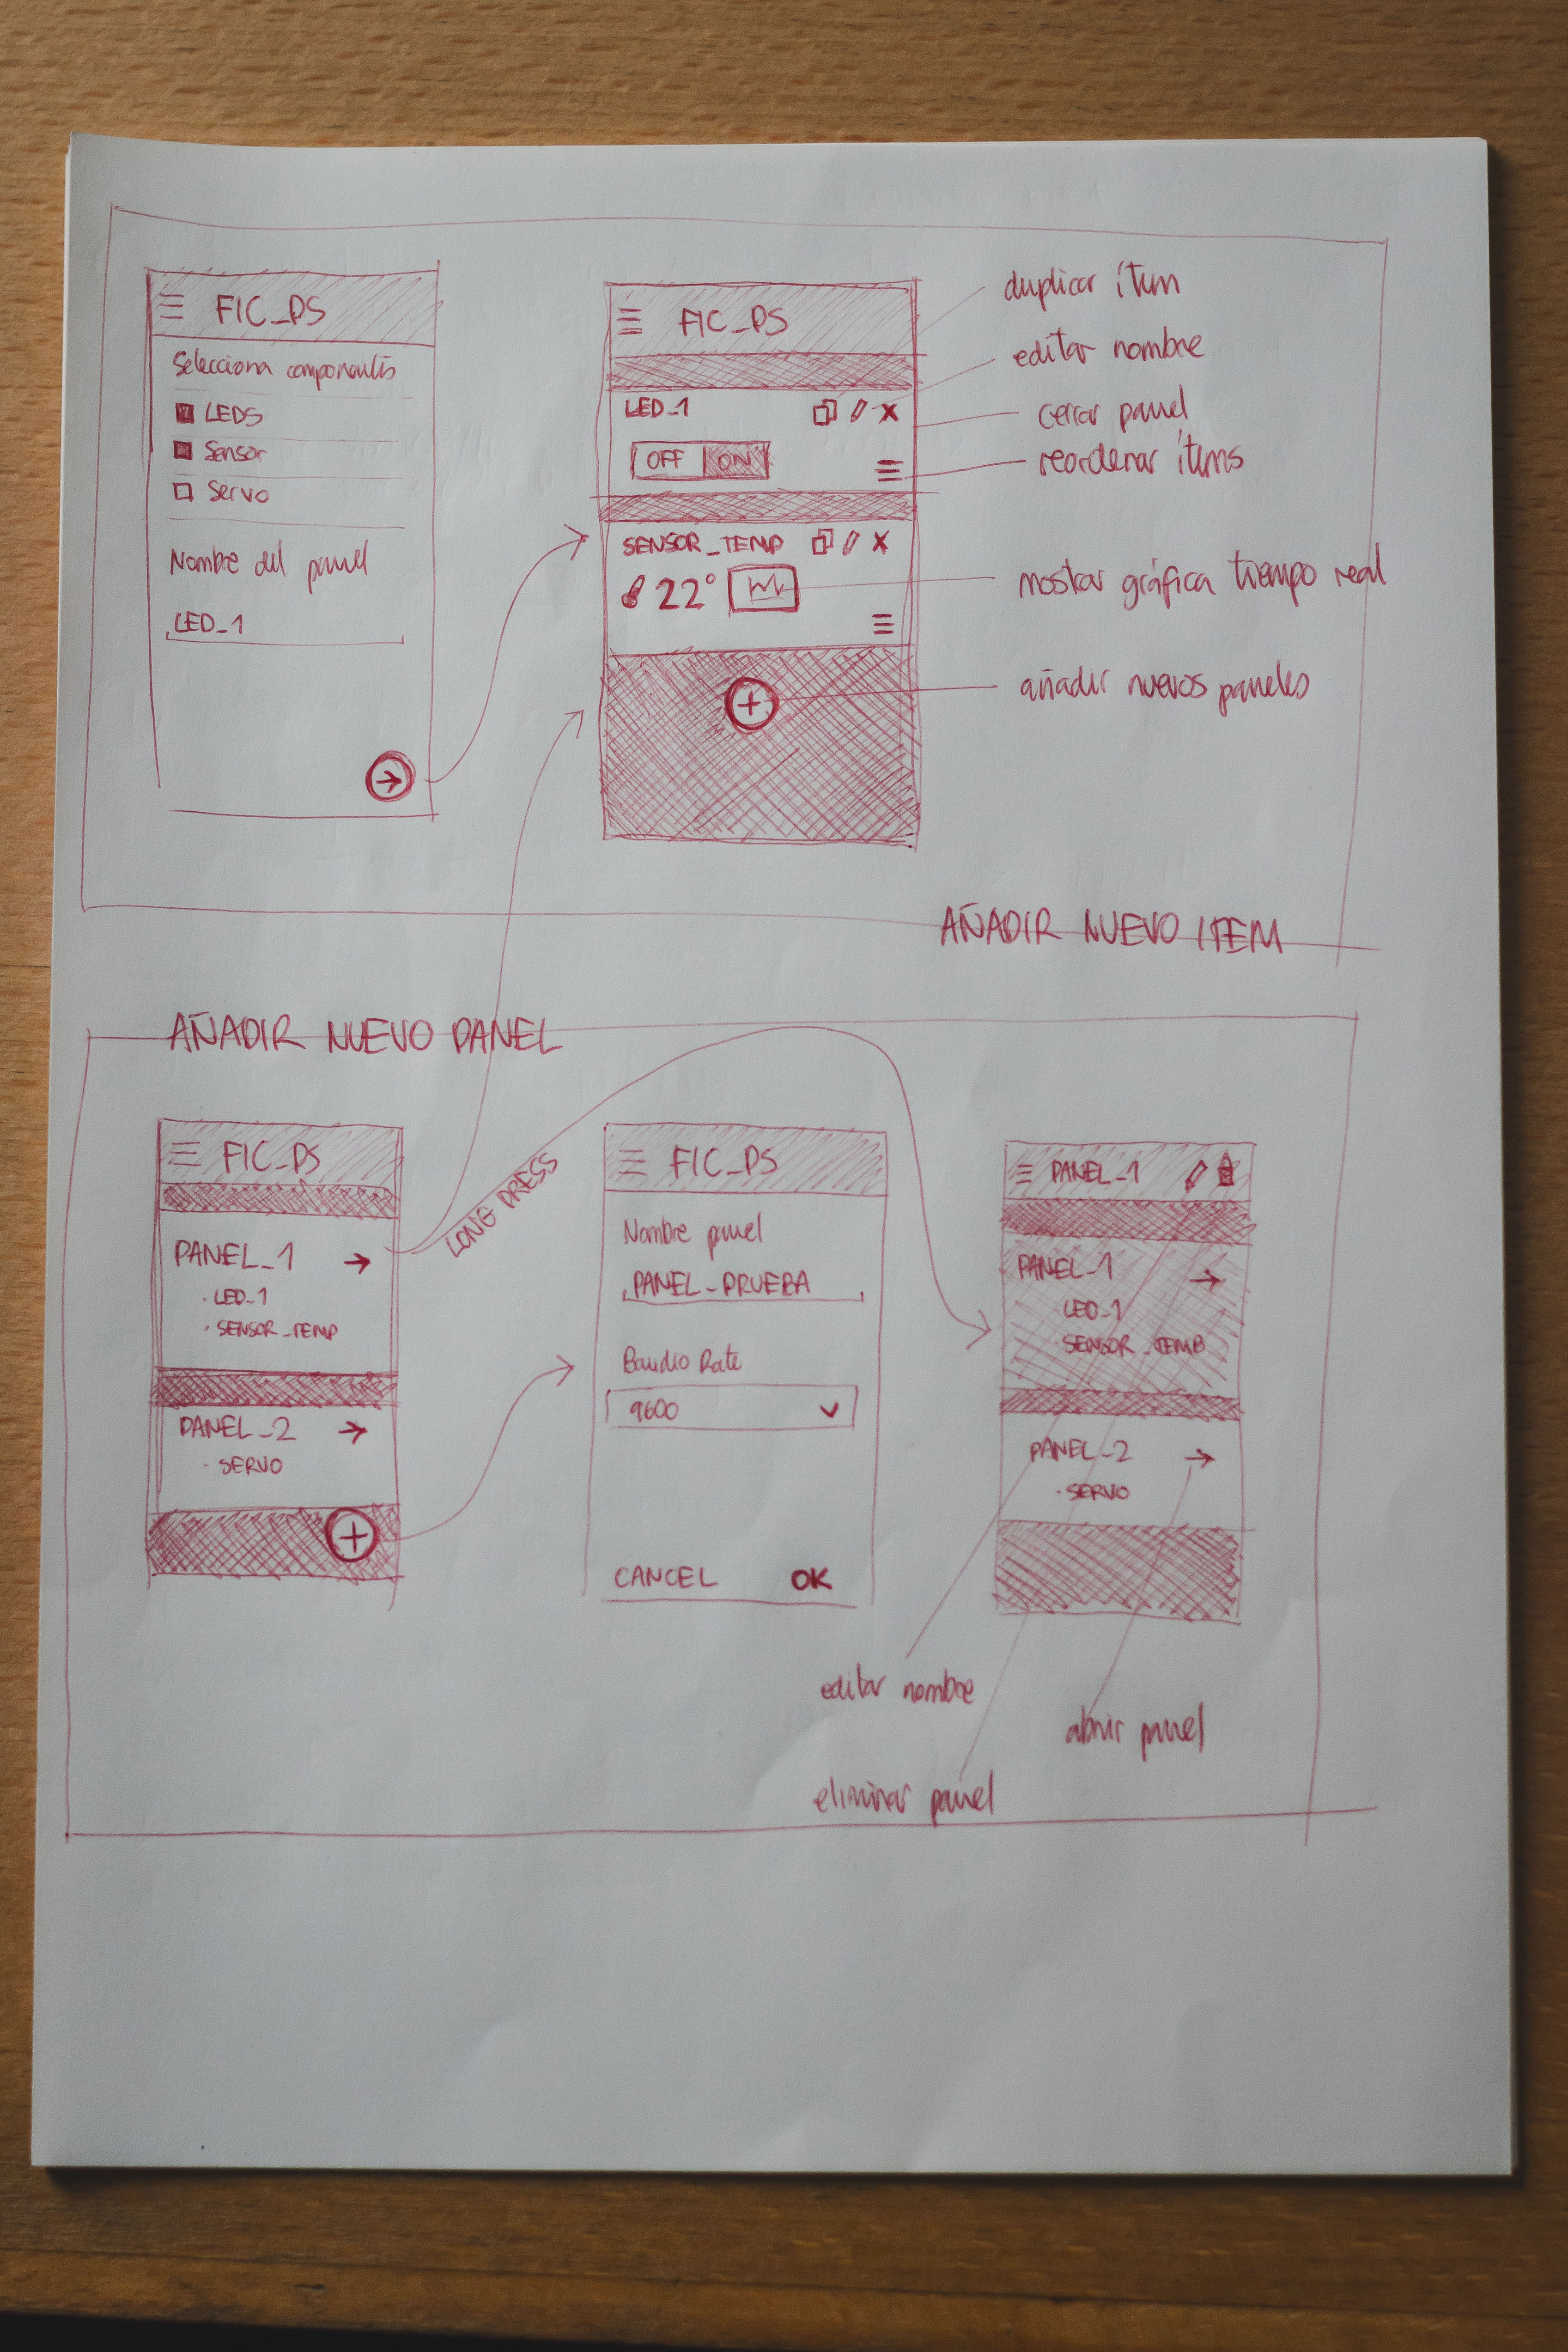 FIC_PS
Selecciona componentes
LEDS
Sensor
Servo
Nombre del panel
LED_1
FIC_PS
LED_1
OFF ON
SENSOR_TEMP
22°
duplicar ítem
editar nombre
cerrar panel
reordenar ítems
mostrar gráfica tiempo real
añadir nuevos paneles
AÑADIR NUEVO ITEM
AÑADIR NUEVO PANEL
FIC_PS
PANEL_1
· LED_1
· SENSOR_TEMP
PANEL_2
· SERVO
LONG PRESS
FIC_PS
Nombre panel
PANEL_PRUEBA
Baudio Rate
9600
CANCEL OK
PANEL_1
PANEL_1
LED_1
SENSOR_TEMP
PANEL_2
· SERVO
editar nombre
abrir panel
eliminar panel